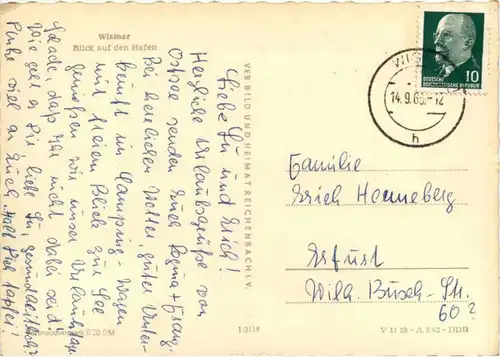 Wismar
Blick auf den Hafen
Liebe Lu und Erich!
Herzliche Urlaubsgrüße von
Ostsee senden Euch Regina + Franz
Bei herrlichen Wetter, guter Unter-
kunft im Camping-Wagen
mit freien Blick zur See
genießen wir unser Urlaubstage
Schade, daß Ihr nicht dabei seid!
Wie geht es Dir liebe Lu, gesundheitlich?
Denke viel an Euch. Halt Dich tapfer!
VEB BILD UND HEIMAT REICHENBACH I. V.
WIS
14.9.65.-12
h
10
DEUTSCHE
DEMOKRATISCHE REPUBLIK
Familie
Erich Henneberg
Erfurt
Wilh. Busch-Str.
60
0,20 DM
V 11 28 - A 2/62 - DDR